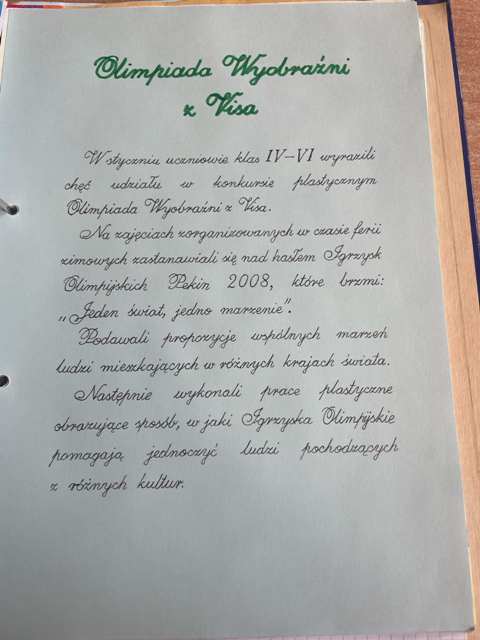 Olimpiada Wyobraźni
z Visa
W styczniu uczniowie klas IV-VI wyrazili
chęć udziału w konkursie plastycznym
Olimpiada Wyobraźni z Visa.
Na zajęciach zorganizowanych w czasie ferii
zimowych zastanawiali się nad hasłem Igrzysk
Olimpijskich Pekin 2008, które brzmi:
„Jeden świat, jedno marzenie".
Podawali propozycje wspólnych marzeń
ludzi mieszkających w różnych krajach świata.
Następnie wykonali prace plastyczne
obrazujące sposób, w jaki Igrzyska Olimpijskie
pomagają jednoczyć ludzi pochodzących
z różnych kultur.